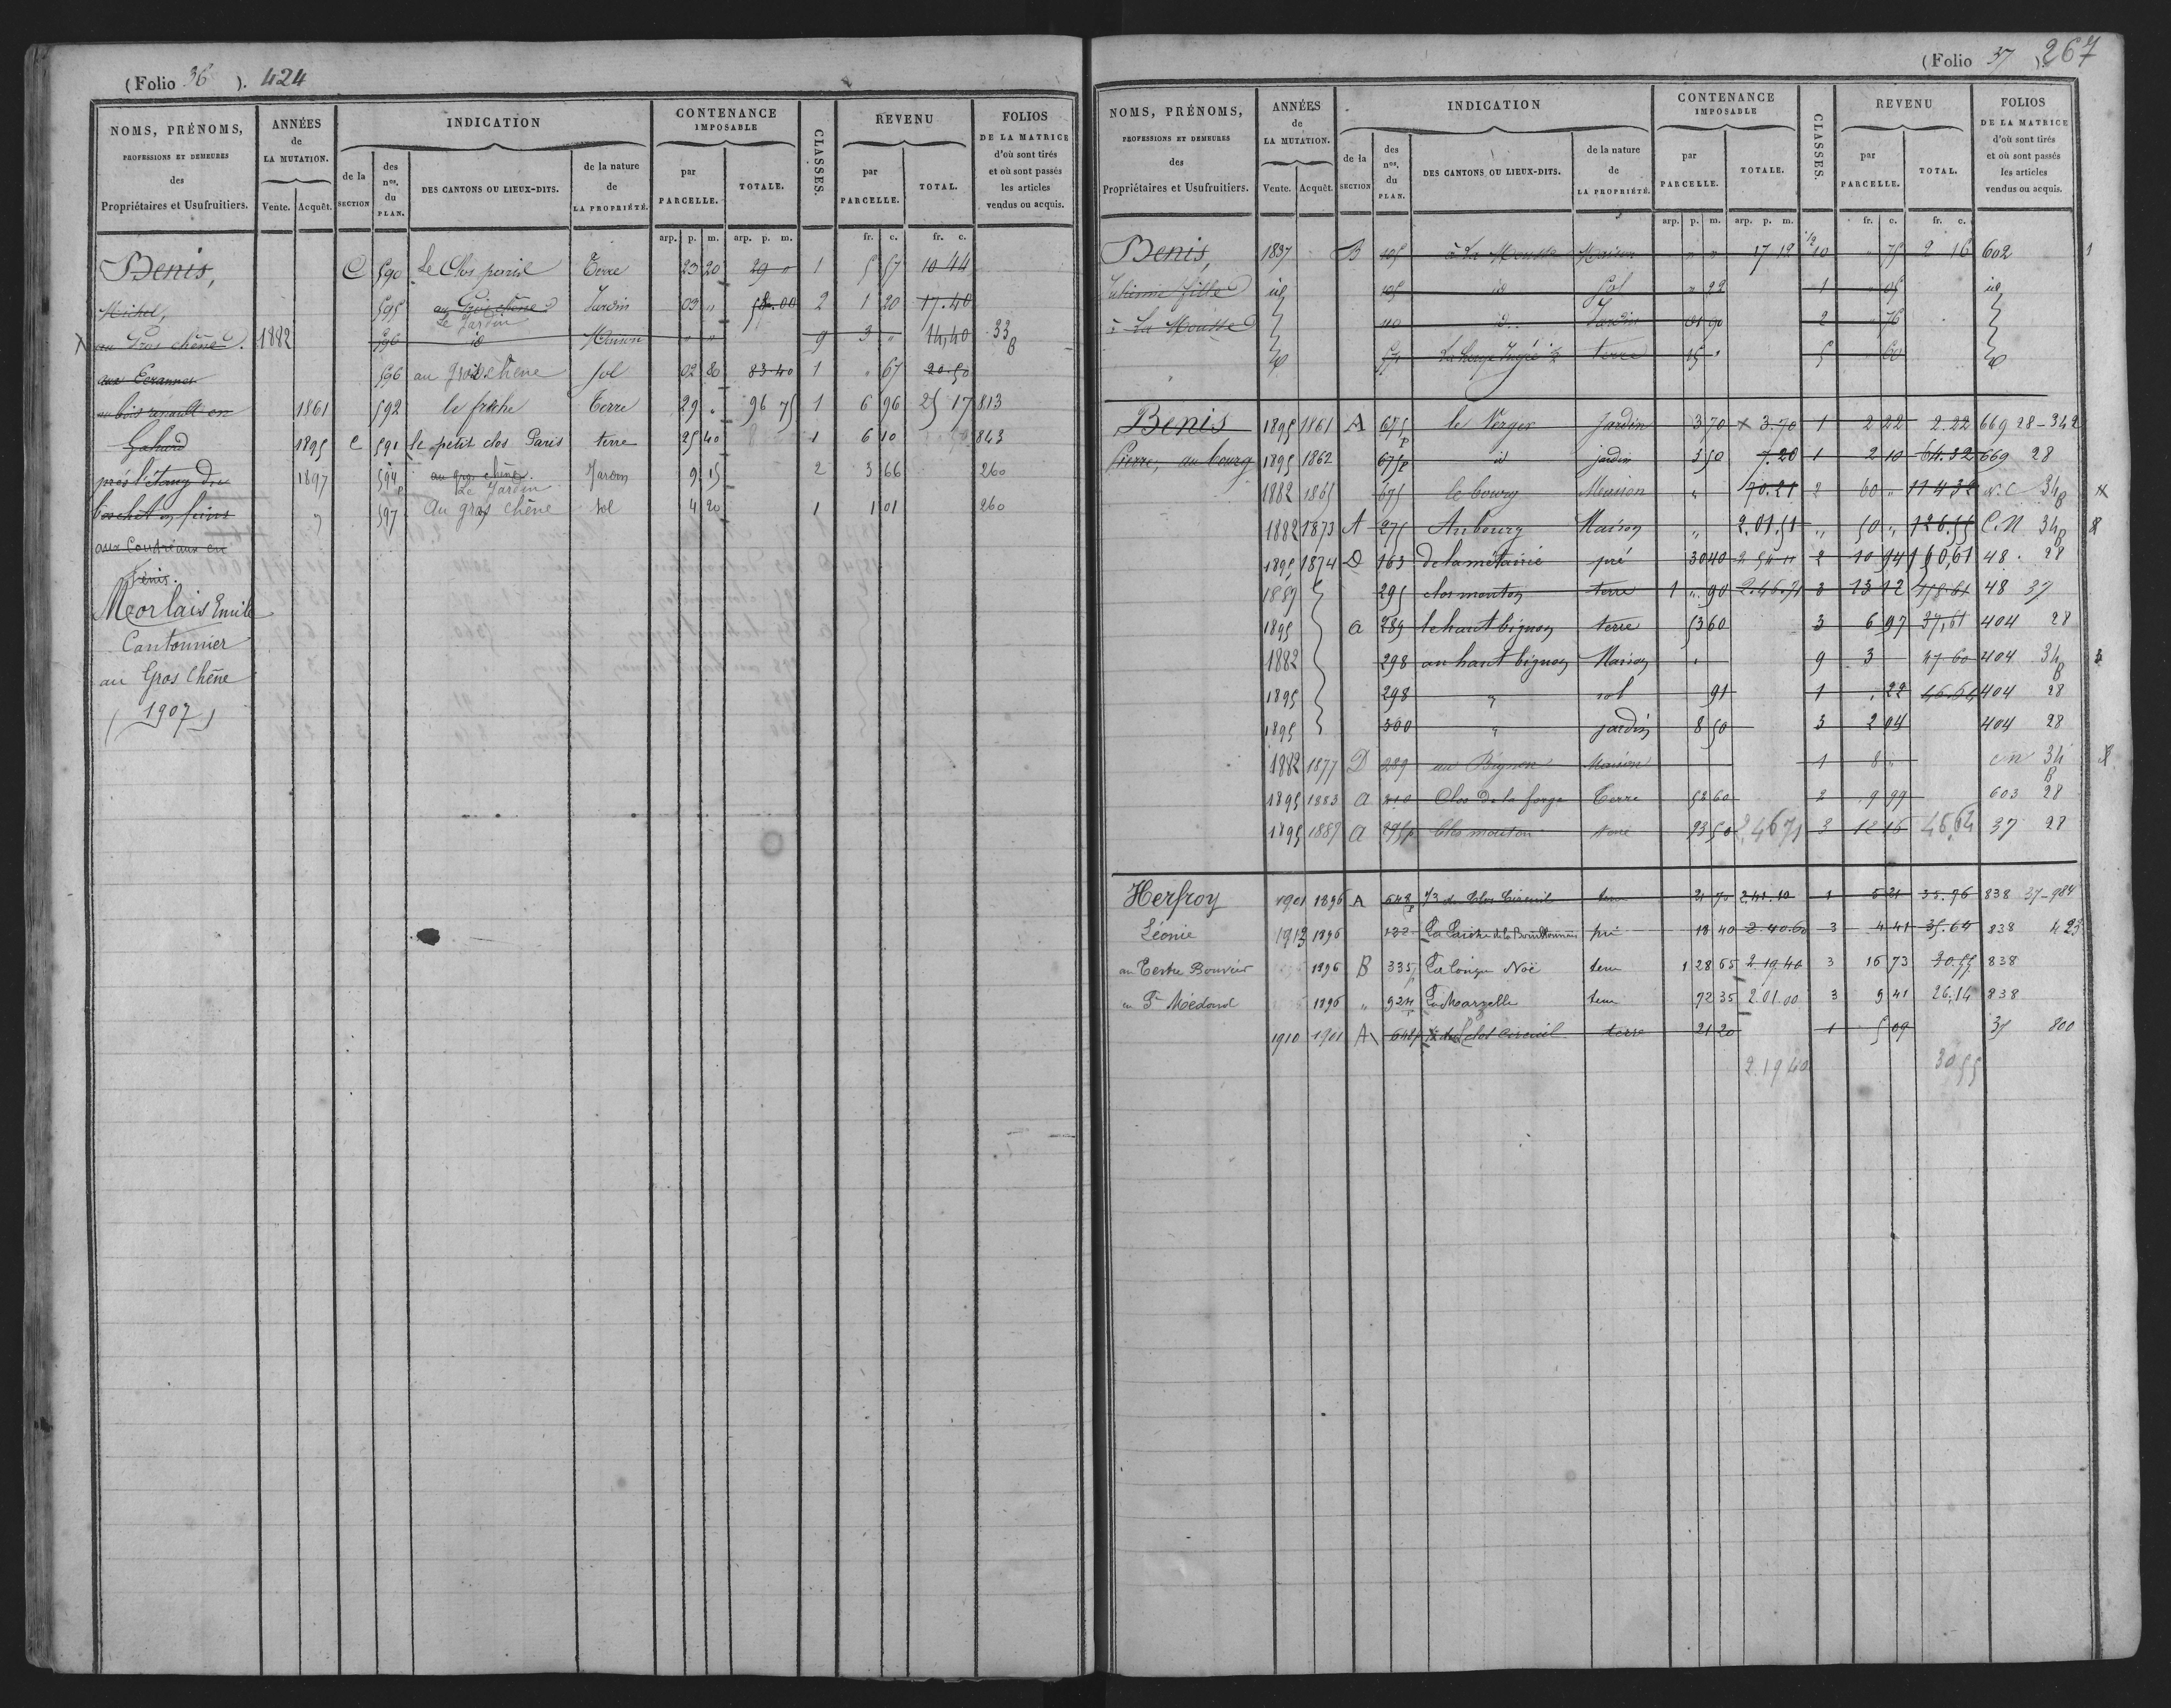 (Folio 36 ). 424
NOMS, PRÉNOMS,
PROFESSIONS ET DEMEURES
des
Propriétaires et Usufruitiers.
ANNÉES
de
LA MUTATION.
Vente. Acquêt.
INDICATION
de la
SECTION
des
nos.
du
PLAN.
DES CANTONS OU LIEUX-DITS.
de la nature
de
LA PROPRIÉTÉ.
CONTENANCE
IMPOSABLE
par
PARCELLE.
TOTALE.
CLASSES.
REVENU
par
PARCELLE.
TOTAL.
FOLIOS
DE LA MATRICE
d'où sont tirés
et où sont passés
les articles
vendus ou acquis.
arp. p. m. arp. p. m. fr. c. fr. c.
Benis, C 590 Le Clos Terre 23 20 29 0 1 5 57 10 44
Michel, 595 au Gros chêne Jardin 03 „ 2 1 20 17.40
Le Jardin
au Gros chêne. 1882 596 id Maison „ „ 9 3 „ 14,40 33 B
596 au gros chêne Sol 02 80 83 40 1 „ 67 20 50
au bois renault en 1861 592 le friche Terre 29 „ 96 75 1 6 96 25 17 813
Gahard 1895 C 591 le petit clos Paris terre 25 40 1 6 10 843
près l'étang du 1897 594 p au gros chêne Jardin 9 15 2 3 66 260
Le Jardin
597 Au gros chêne sol 4 20 1 1 01 260
Morlais Emile
Cantonnier
au Gros Chêne
(1907)
(Folio 37 ) 267
NOMS, PRÉNOMS,
PROFESSIONS ET DEMEURES
des
Propriétaires et Usufruitiers.
ANNÉES
de
LA MUTATION.
Vente. Acquêt.
INDICATION
de la
SECTION
des
nos.
du
PLAN.
DES CANTONS OU LIEUX-DITS.
de la nature
de
LA PROPRIÉTÉ.
CONTENANCE
IMPOSABLE
par
PARCELLE.
TOTALE.
CLASSES.
REVENU
par
PARCELLE.
TOTAL.
FOLIOS
DE LA MATRICE
d'où sont tirés
et où sont passés
les articles
vendus ou acquis.
arp. p. m. arp. p. m. fr. c. fr. c.
Benis, 1837 B 105 à La Mousse Maison „ „ 17 12 10 „ 75 2 16 602 1
Julienne fille id 105 id Sol „ 22 1 „ 05 id
à La Mousse 110 id. Jardin 01 90 2 „ 76
terre 15 „ 5 „ 60
Benis 1895 1861 A 675 p le Verger Jardin 3 70 3.70 1 2 22 2.22 669 28-342
Pierre, au bourg 1895 1862 675p id jardin 3 50 7.20 1 2 10 64.32 669 28
1882 1865 675 le bourg Maison „ 70.21 2 60 „ 114 32 N.C 34 B
1882 1873 A 275 Au bourg Maison „ 2.01.51 „ 50 „ 126.55 C.N 34 B
1895 1874 D 163 de la métairie pré 30 40 2 2 10 94 150,61 48 . 28
1889 295 clos mouton terre 1 „ 90 2.46.71 3 13 12 118.61 48 37
1895 a 289 le haut bignon terre 53 60 3 6 97 37,61 404 28
1882 298 au haut bignon Maison „ 9 3 47 60 404 34 B
1895 298 „ sol 91 1 „ 22 46.64 404 28
1895 300 „ jardin 8 50 3 2 04 404 28
1882 1877 D 289 au Bignon Maison 1 8 „ C N 34 B
1895 1883 a 210 Clos de la forge Terre 52 60 2 9 99 603 28
1895 1889 a 295p Clos mouton terre 93 50 2,46 71 3 12 16 46,64 37 28
Herfroy 1901 1896 A 648 p 1/3 du Clos terre 21 70 2.41.10 1 5 21 35.96 838 37-984
Léonie 1913 1896 pré 18 40 2 40.60 3 4 41 35.64 838 423
au Tertre Bouvier 1896 B 335 La longue Noë terre 1 28 65 2.19.40 3 16 73 30.55 838
en St Médard 1896 „ 924 La Marzelle terre 72 35 2.01.00 3 9 41 26.14 838
1910 1901 A 648p clos terre 21 20 1 5 09 37 800
2.19 40 30,55